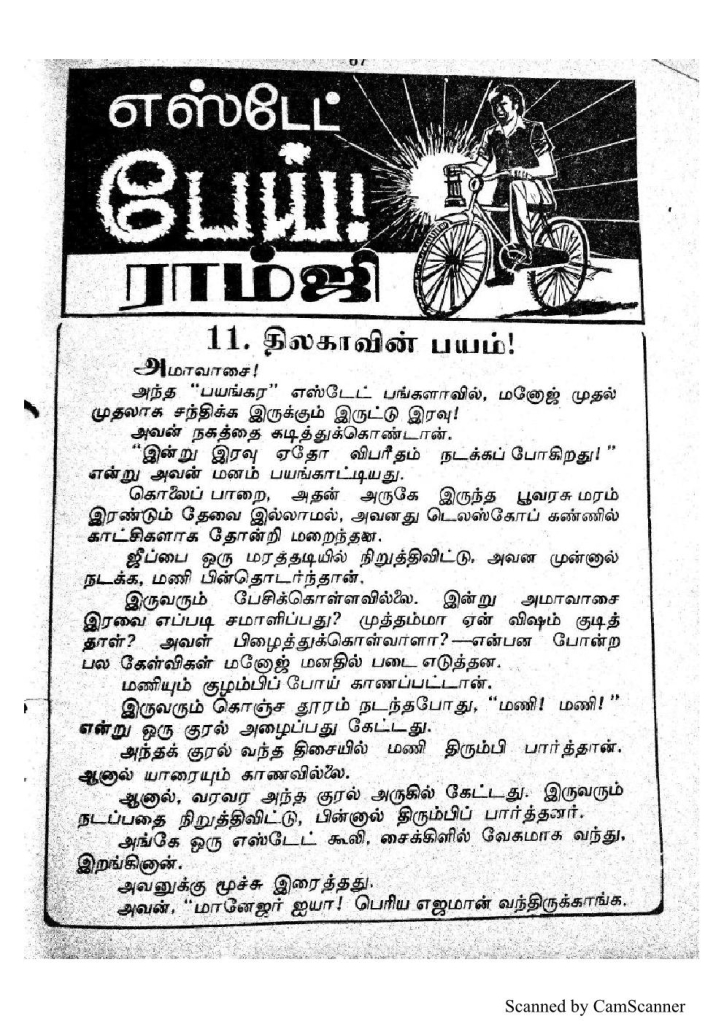 67
எஸ்டேட்
பேய்!
ராம்ஜி
11. திலகாவின் பயம்!
அமாவாசை!
அந்த “பயங்கர” எஸ்டேட் பங்களாவில், மனோஜ் முதல்
முதலாக சந்திக்க இருக்கும் இருட்டு இரவு!
அவன் நகத்தை கடித்துக்கொண்டான்.
“இன்று இரவு ஏதோ விபரீதம் நடக்கப் போகிறது!”
என்று அவன் மனம் பயங்காட்டியது.
கொலைப் பாறை, அதன் அருகே இருந்த பூவரசு மரம்
இரண்டும் தேவை இல்லாமல், அவனது டெலஸ்கோப் கண்ணில்
காட்சிகளாக தோன்றி மறைந்தன.
ஜீப்பை ஒரு மரத்தடியில் நிறுத்திவிட்டு, அவன முன்னால்
நடக்க, மணி பின்தொடர்ந்தான்.
இருவரும் பேசிக்கொள்ளவில்லை. இன்று அமாவாசை
இரவை எப்படி சமாளிப்பது? முத்தம்மா ஏன் விஷம் குடித்
தாள்? அவள் பிழைத்துக்கொள்வாளா?—என்பன போன்ற
பல கேள்விகள் மனோஜ் மனதில் படை எடுத்தன.
மணியும் குழம்பிப் போய் காணப்பட்டான்.
இருவரும் கொஞ்ச தூரம் நடந்தபோது, “மணி! மணி!”
என்று ஒரு குரல் அழைப்பது கேட்டது.
அந்தக் குரல் வந்த திசையில் மணி திரும்பி பார்த்தான்.
ஆனால் யாரையும் காணவில்லை.
ஆனால், வரவர அந்த குரல் அருகில் கேட்டது. இருவரும்
நடப்பதை நிறுத்திவிட்டு, பின்னால் திரும்பிப் பார்த்தனர்.
அங்கே ஒரு எஸ்டேட் கூலி, சைக்கிளில் வேகமாக வந்து,
இறங்கினான்.
அவனுக்கு மூச்சு இரைத்தது.
அவன், “மானேஜர் ஐயா! பெரிய எஜமான் வந்திருக்காங்க.
Scanned by CamScanner